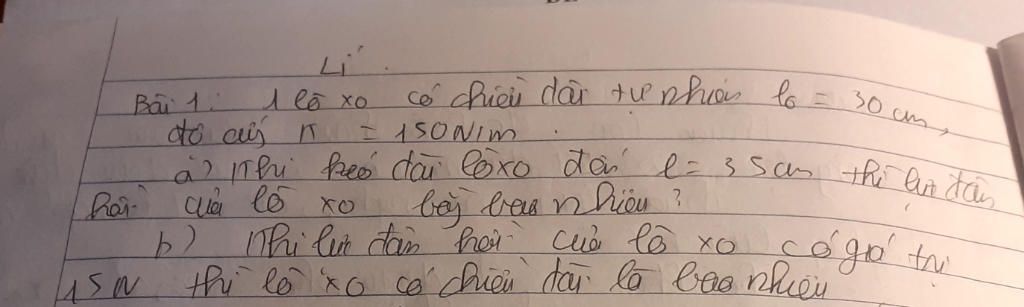 Lí
Bài 1: 1 lò xo có chiều dài tự nhiên l0 = 30 cm,
độ cứng K = 150N/m.
a) Khi kéo dài lò xo đến l = 35cm thì lực đàn
hồi của lò xo bằng bao nhiêu?
b) Khi lực đàn hồi của lò xo có giá trị
15N thì lò xo có chiều dài là bao nhiêu